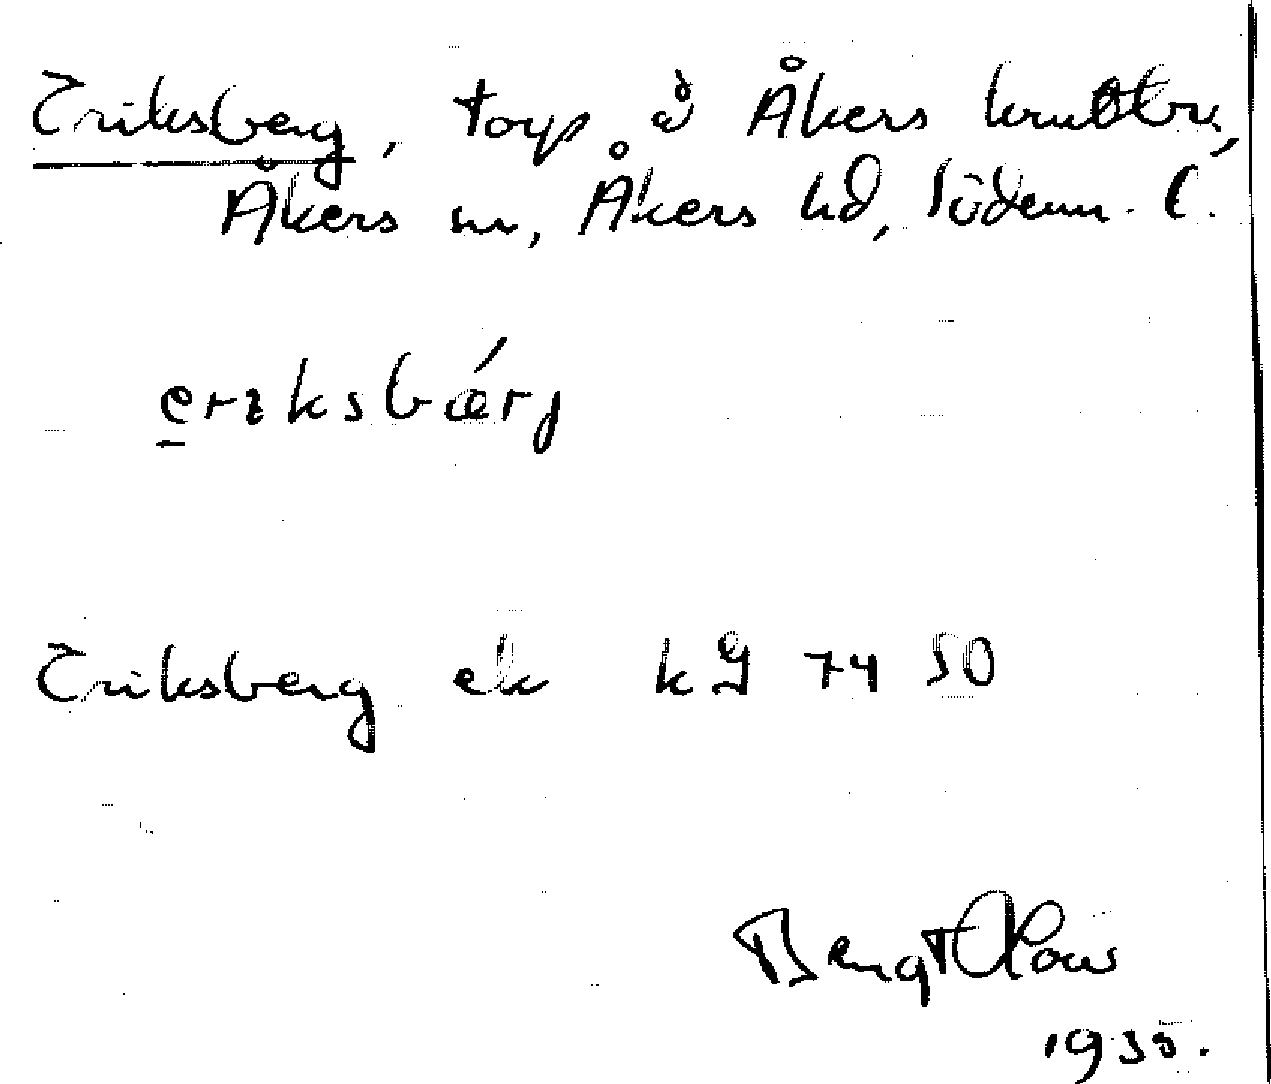 Eriksberg, torp å Åkers krutbr,
Åkers sn, Åkers hd, Söderm. l.
erıksbǽrj
Eriksberg ek kg 74 50
Bengt Olous
1935.